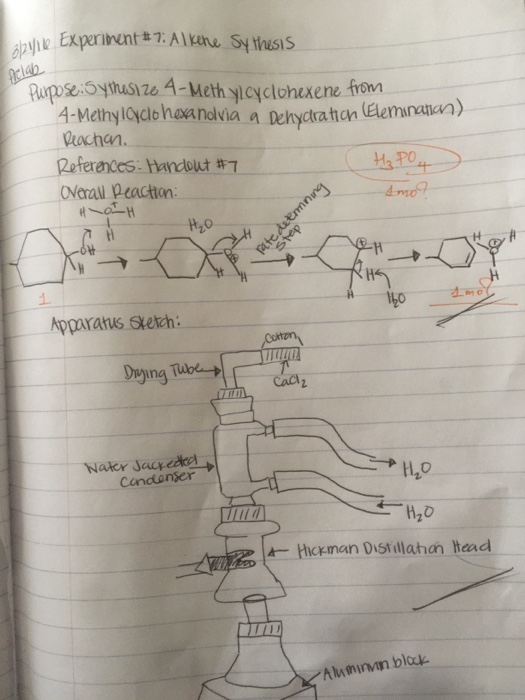 3/21/16 Experiment #7: Alkene Sythesis
Prelab
Purpose: Sythusize 4-Methylcyclohexene from
4-Methylcyclohexanol via a Dehydration (Elemination)
Reaction.
References: Handout #7
H3PO4
1 mol
Overall Reaction:
H O+ H
H
OH
H
1
H2O
H
H
H
Rate determining
step
⊕ H
H
H
H2O
H
H
H
1 mol
Apparatus Sketch:
Cotton
Drying Tube
CaCl2
Water Jacketed
Condenser
H2O
H2O
Hickman Distillation Head
Aluminum block